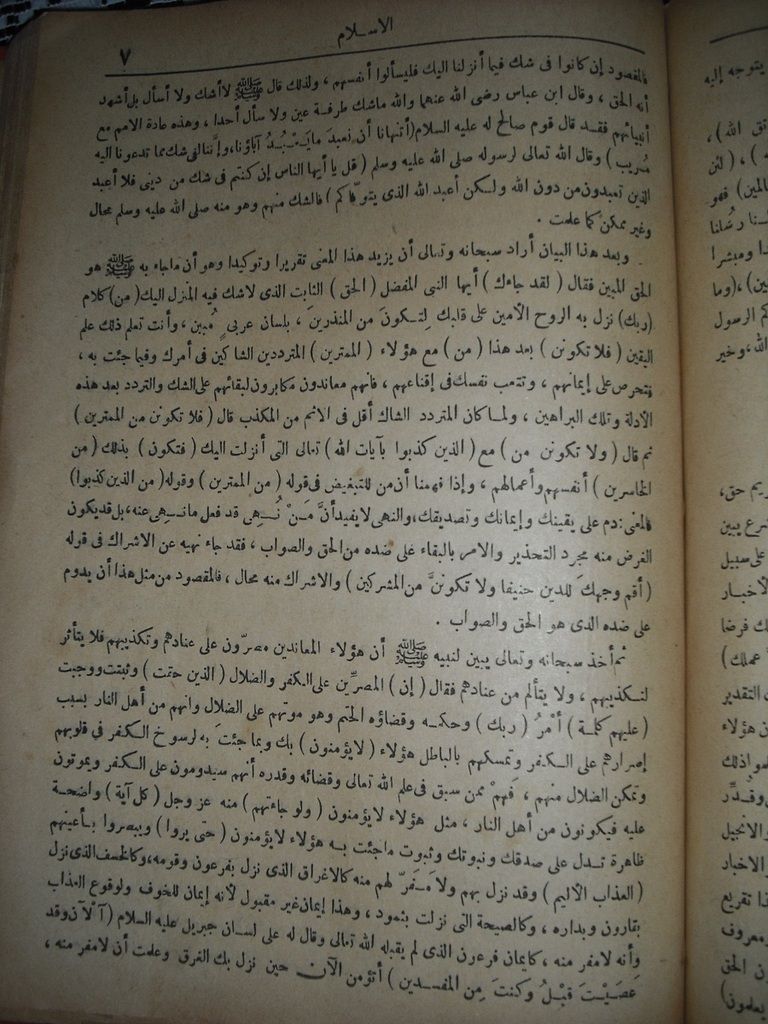 الاسلام
٧
فالمقصود إن كانوا فى شك فيما أنزلنا اليك فليسألوا أنفسهم ، ولذلك قال ﷺ لا أشك ولا أسأل بل أشهد
أنه الحق ، وقال ابن عباس رضى الله عنهما والله ماشك طرفة عين ولا سأل أحدا ، وهذه عادة الامم مع
أنبيائهم فقد قال قوم صالح له عليه السلام (أتنهانا أن نعبد ما يَعْبُدُ آباؤنا، وإننا لفى شك مما تدعونا اليه
مُريب ) وقال الله تعالى لرسوله صلى الله عليه وسلم ( قل يا أيها الناس إن كنتم فى شك من دينى فلا أعبد
الذين تعبدون من دون الله ولكن أعبد الله الذى يتوفاكم ) فالشك منهم وهو منه صلى الله عليه وسلم محال
وغير ممكن كما علمت .
وبعد هذا البيان أراد سبحانه وتعالى أن يزيد هذا المعنى تقريرا وتوكيدا وهو أن ماجاء به ﷺ هو
الحق المبين فقال ( لقد جاءك ) أيها النبى المفضل ( الحق ) الثابت الذى لاشك فيه المنزل اليك ( من ) كلام
(ربك) نزل به الروح الأمين على قلبك لِتكونَ من المنذرين ، بلسان عربى مُبين ، وأنت تعلم ذلك علم
اليقين ( فلا تكونن ) بعد هذا ( من ) مع هؤلاء ( الممترين ) المترددين الشاكين فى أمرك وفيما جئت به ،
فتحرص على إيمانهم ، وتتعب نفسك فى إقناعهم ، فانهم معاندون مكابرون لبقائهم على الشك والتردد بعد هذه
الأدلة وتلك البراهين ، ولما كان المتردد الشاك أقل فى الاثم من المكذب قال ( فلا تكونن من الممترين )
ثم قال ( ولا تكونن من ) مع ( الذين كذبوا بآيات الله ) تعالى التى أنزلت اليك ( فتكون ) بذلك ( من
الخاسرين ) أنفسهم وأعمالهم ، وإذا فهمنا أن من للتبغيض فى قوله ( من الممترين ) وقوله ( من الذين كذبوا)
فالمعنى: دم على يقينك وإيمانك وتصديقك، والنهى لا يفيد أنَّ مَنْ نُهى قد فعل مانهى عنه، بل قد يكون
الغرض منه مجرد التحذير والامر بالبقاء على ضده من الحق والصواب ، فقد جاء نهيه عن الاشراك فى قوله
( أقم وجهكَ للدين حنيفا ولا تكوننَّ من المشركين ) والاشراك منه محال ، فالمقصود من مثل هذا أن يدوم
على ضده الذى هو الحق والصواب .
ثم أخذ سبحانه وتعالى يبين لنبيه ﷺ أن هؤلاء المعاندين مصرّون على عنادهم وتكذيبهم فلا يتأثر
لتكذيبهم ، ولا يتألم من عنادهم فقال ( إن ) المصرِّين على الكفر والضلال ( الذين حقت ) وثبتت ووجبت
( عليهم كلمة ) أمْرُ ( ربك ) وحكمه وقضاؤه الحتم وهو موتهم على الضلال وانهم من أهل النار بسبب
إصرارهم على الكفر وتمسكهم بالباطل هؤلاء ( لايؤمنون ) بك وبما جئتَ به لرسوخ الكفر فى قلوبهم
وتمكن الضلال منهم ، فَهمْ ممن سبق فى علم الله تعالى وقضائه وقدره أنهم سيدومون على الكفر ويموتون
عليه فيكونون من أهل النار ، مثل هؤلاء لا يؤمنون ( ولو جاءتهم ) منه عز وجل ( كل آية ) واضحة
ظاهرة تدل على صدقك ونبوتك وثبوت ماجئت به هؤلاء لايؤمنون ( حتى يروا ) ويبصروا بأعينهم
( العذاب الأليم ) وقد نزل بهم ولا مَفرّ لهم منه كالاغراق الذى نزل بفرعون وقومه، وكالخسف الذى نزل
بقارون وبداره ، وكالصيحة التى نزلت بثمود ، وهذا إيمان غير مقبول لأنه إيمان للخوف ولوقوع العذاب
وأنه لامفر منه ، كايمان فرعون الذى لم يقبله الله تعالى وقال له على لسان جبريل عليه السلام ( آلآن وقد
عَصَيْتَ قبْلُ وكنتَ مِن المفسدين ) أتؤمن الآن حين نزل بك الغرق وعلمت أن لامفر منه ،